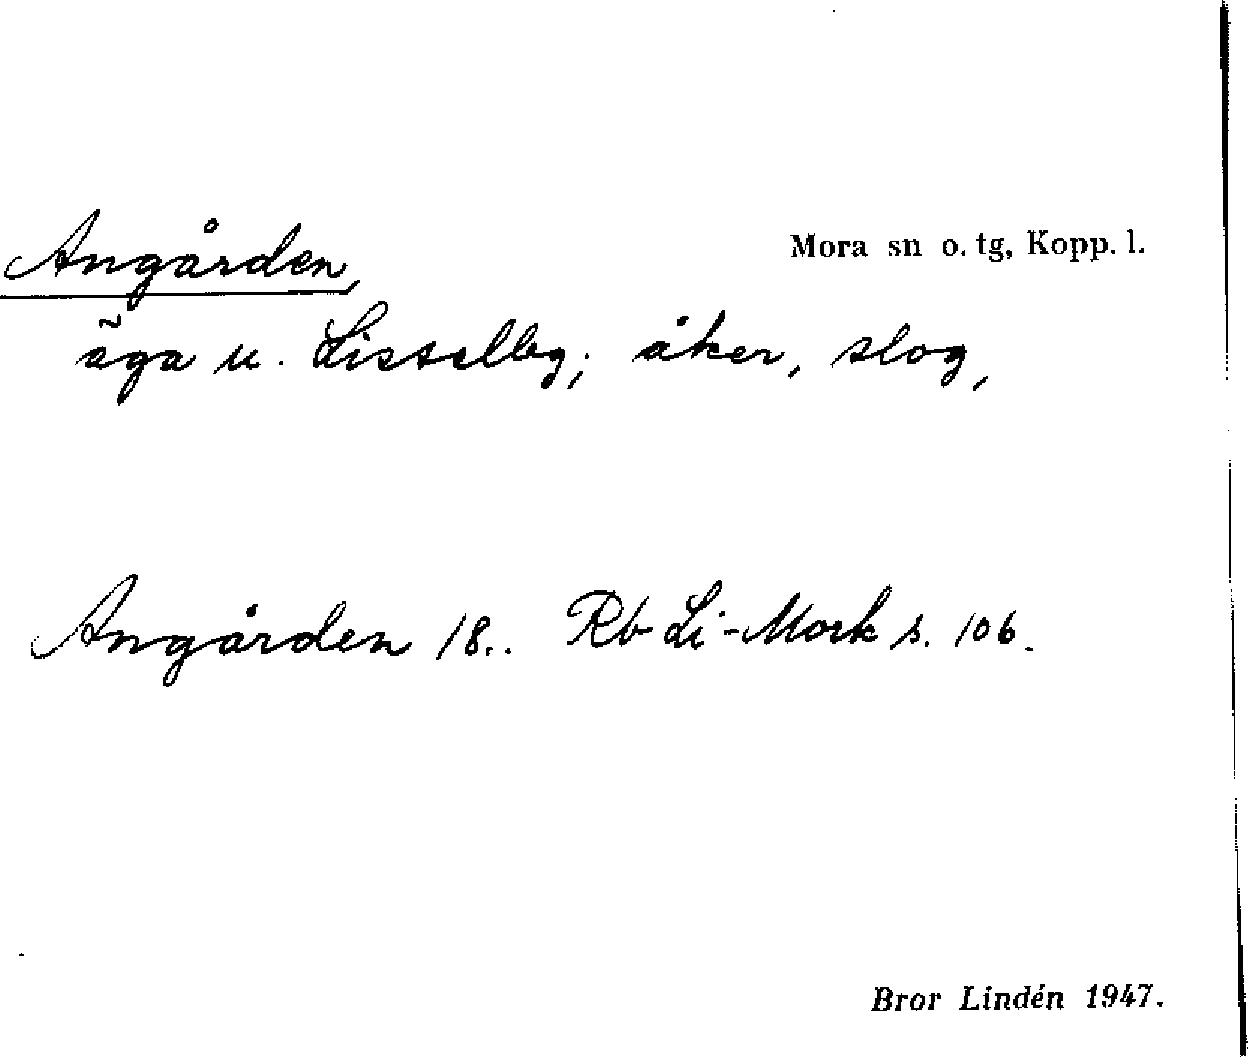 Angården,
Mora sn o. tg, Kopp. l.
äga u. Lisselbg; åker, slog,
Angården 18.. Rb Li-Mork s. 106.
Bror Lindén 1947.